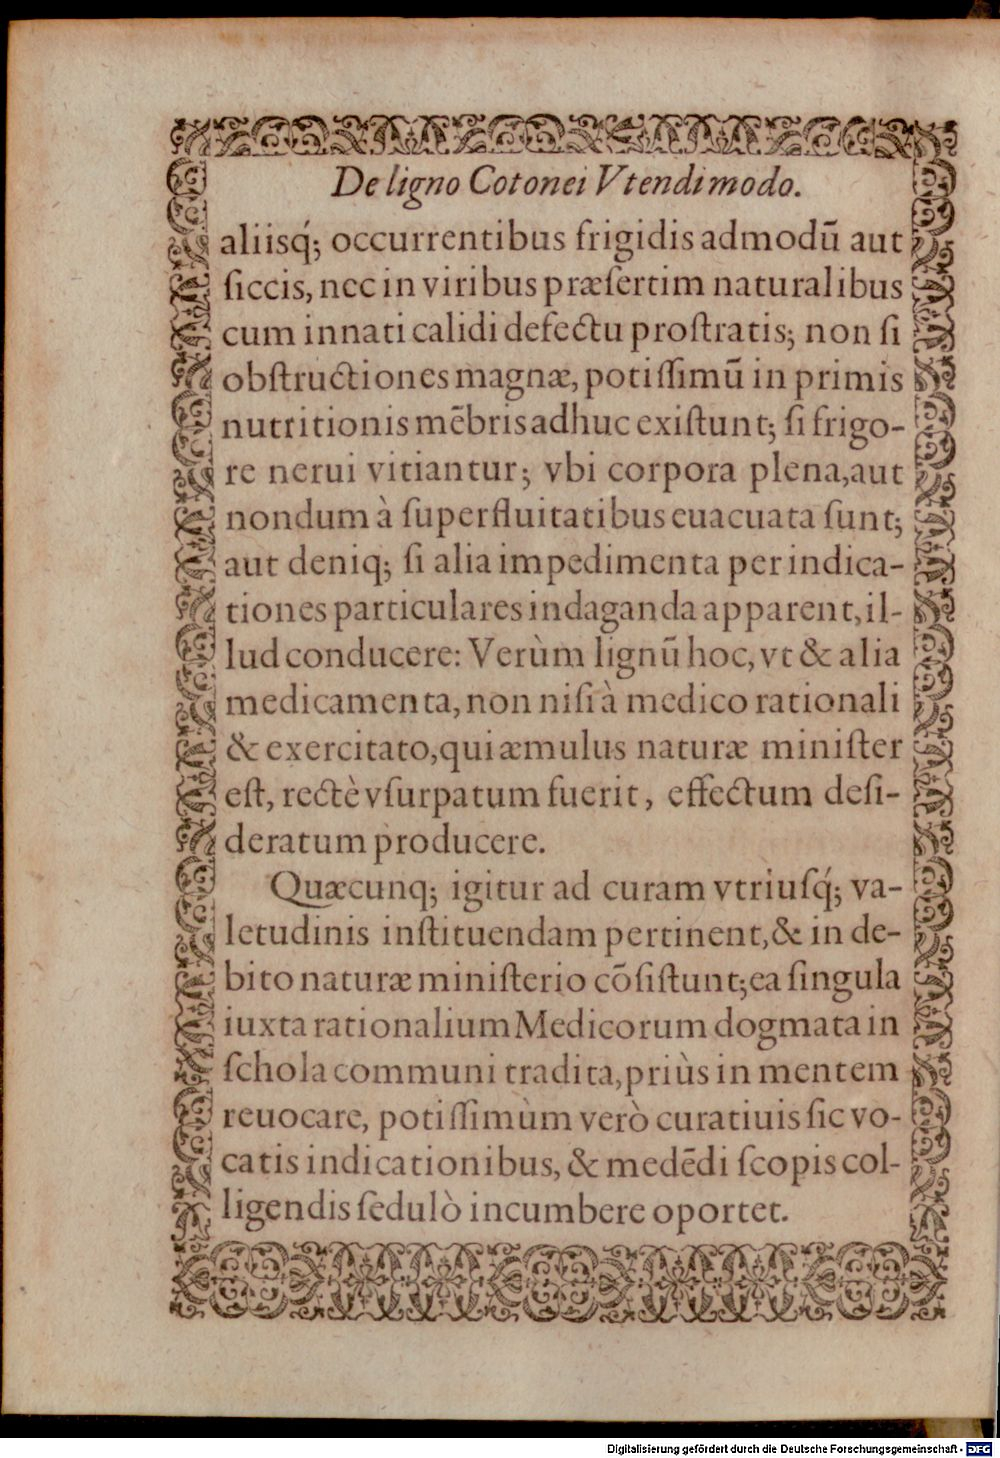 De ligno Cotonei Vtendi modo.
aliisq́; occurrentibus frigidis admodū aut
ſiccis, nec in viribus præſertim naturalibus
cum innati calidi defectu proſtratis; non ſi
obſtructiones magnæ, potiſſimū in primis
nutritionis mēbris adhuc exiſtunt; ſi frigo-
re nerui vitiantur; vbi corpora plena, aut
nondum à ſuperfluitatibus euacuata ſunt;
aut deniq; ſi alia impedimenta per indica-
tiones particulares indaganda apparent, il-
lud conducere: Verùm lignū hoc, vt & alia
medicamenta, non niſi à medico rationali
& exercitato, qui æmulus naturæ miniſter
eſt, rectè vſurpatum fuerit, effectum deſi-
deratum producere.
Quæcunq; igitur ad curam vtriuſq́; va-
letudinis inſtituendam pertinent, & in de-
bito naturæ miniſterio cōſiſtunt; ea ſingula
iuxta rationalium Medicorum dogmata in
ſchola communi tradita, priùs in mentem
reuocare, potiſſimùm verò curatiuis ſic vo-
catis indicationibus, & medēdi ſcopis col-
ligendis ſedulò incumbere oportet.
Digitalisierung gefördert durch die Deutsche Forschungsgemeinschaft - DFG